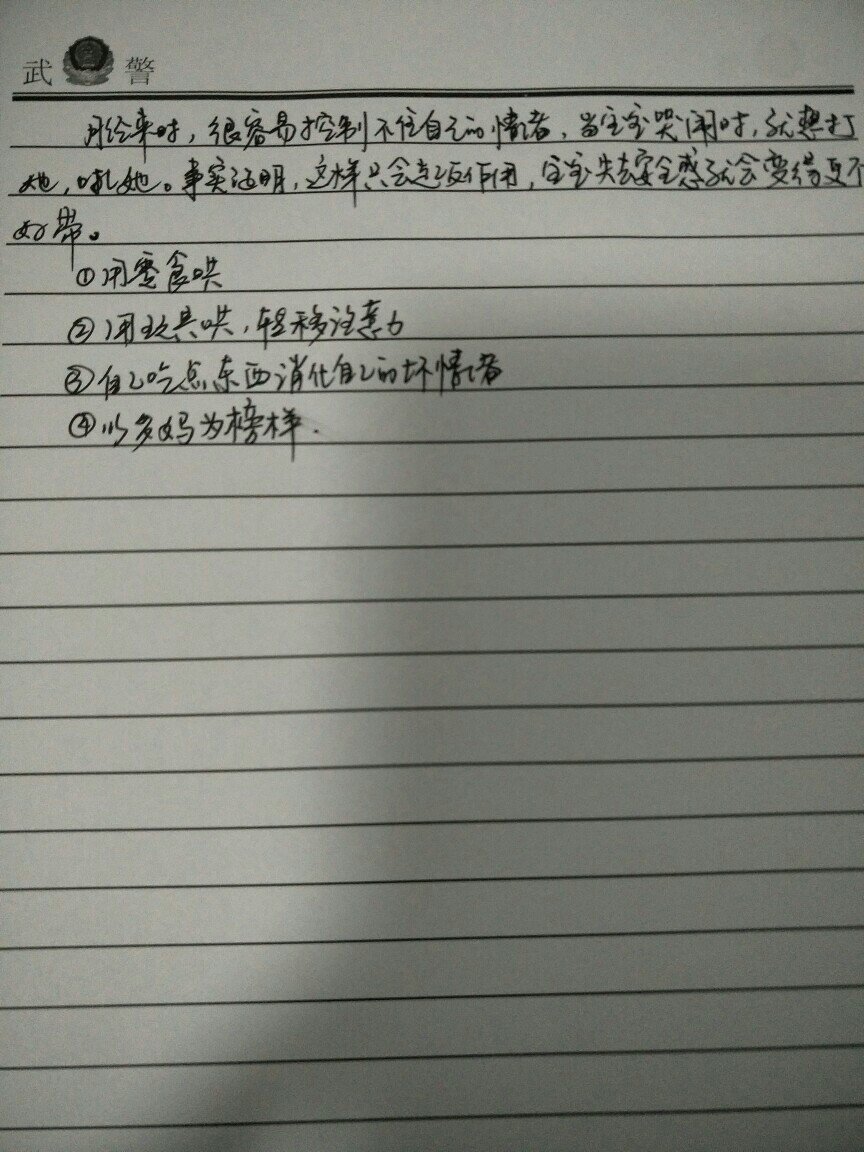 武 警
月经来时，很容易控制不住自己的情绪，当宝宝哭闹时，就想打
她，吼她。事实证明，这样只会起反作用，宝宝失去安全感就会变得更不
好带。
①用零食哄
②用玩具哄，转移注意力
③自己吃点东西消化自己的坏情绪
④以多妈为榜样.